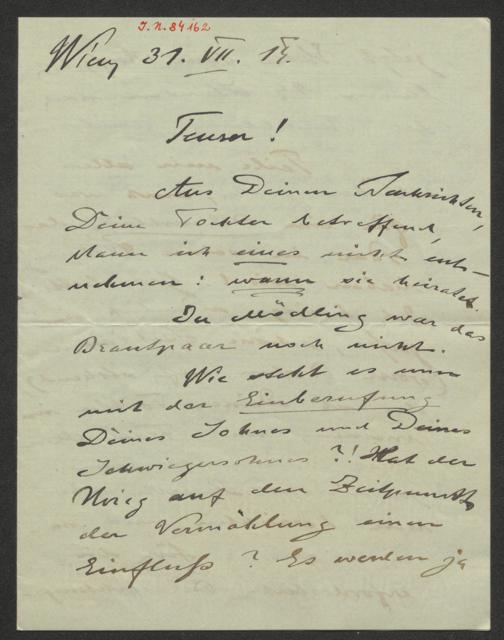 J. N. 84162
Wien, 31. VII. 14.
Teurer!
Aus Deinen Nachrichten,
Deine Tochter betreffend,
kann ich eines nicht ent-
nehmen: wann sie heiratet.
In Mödling war das
Brautpaar noch nicht.
Wie steht es nun
mit der Einberufung
Deines Sohnes und Deines
Schwiegersohnes?! Hat der
Krieg auf den Zeitpunkt
der Vermählung einen
Einfluß? Es werden ja